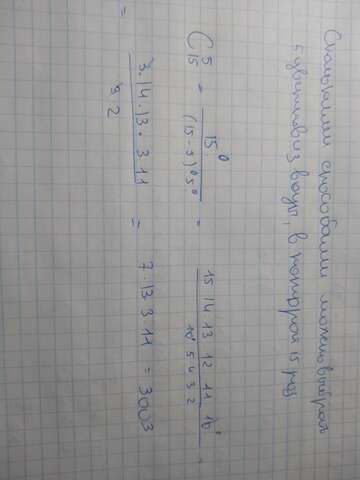 Сколькими способами можно выбрать
5 цветков из вазы, в которой 15 роз
C 5 15 = 15! / (15-3)! 5! = 15 14 13 12 11 10! / 10! 5 4 3 2 =
= 3·14·13·3·11 / 2 = 7·13 3·11 = 3003